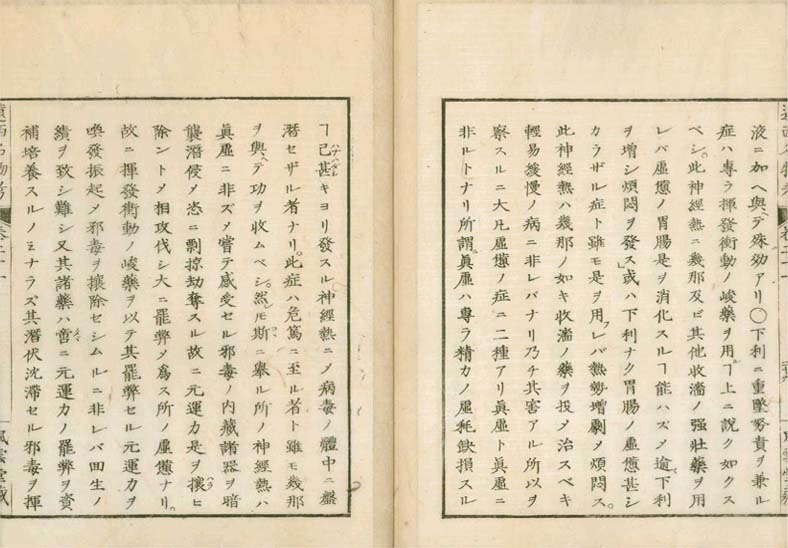 液ニ加ヘ與ヘテ殊効アリ〇下利ニ重墜努責ヲ兼ル
症ハ專ラ揮發衝動ノ峻藥ヲ用フヿ上ニ說ク如クス
ベシ。此神經熱ニ幾那及ビ其他收濇ノ强壯藥ヲ用
レバ虛憊ノ胃腸是ヲ消化スルヿ能ハズメ逾下利
ヲ增シ煩悶ヲ發ス」或ハ下利ナク胃腸ノ虛憊甚シ
カラザル症ト雖モ是ヲ用フレバ熱勢增劇メ煩悶ス。
此神經熱ハ幾那ノ如キ收濇ノ藥ヲ投メ治スベキ
輕易緩慢ノ病ニ非レバナリ乃チ其害アル所以ヲ
察スルニ大凡虛憊ノ症ニ二種アリ眞虛ト眞虛ニ
非ルトナリ所謂眞虛ハ專ラ精力ノ虛耗缺損スル
遠西名物考
卷二十一
風雲堂藏
ヿ已甚キヨリ發スル神經熱ニメ病毒ノ體中ニ盤
溽セザル者ナリ。此症ハ危篤ニ至ル者ト雖モ幾那
ヲ與ヘテ功ヲ收ムベシ。然ルニ斯ニ擧ル所ノ神經熱ハ
眞虛ニ非ズメ嘗テ感受セル邪毒ノ內藏諸器ヲ暗
襲潛侵メ恣ニ剽掠劫奪スル故ニ元運力是ヲ攘ヒ
除ントメ相攻伐シ大ニ罷弊メ爲ス所ノ虛憊ナリ。
故ニ揮發衝動ノ峻藥ヲ以テ其罷弊セル元運力ヲ
喚發振起メ邪毒ヲ攘除セシムルニ非レバ回生ノ
績ヲ致シ難シ又其諸藥ハ啻ニ元運力ノ罷弊ヲ資
補培養スルノミナラズ其潛伏沈滯セル邪毒ヲ揮